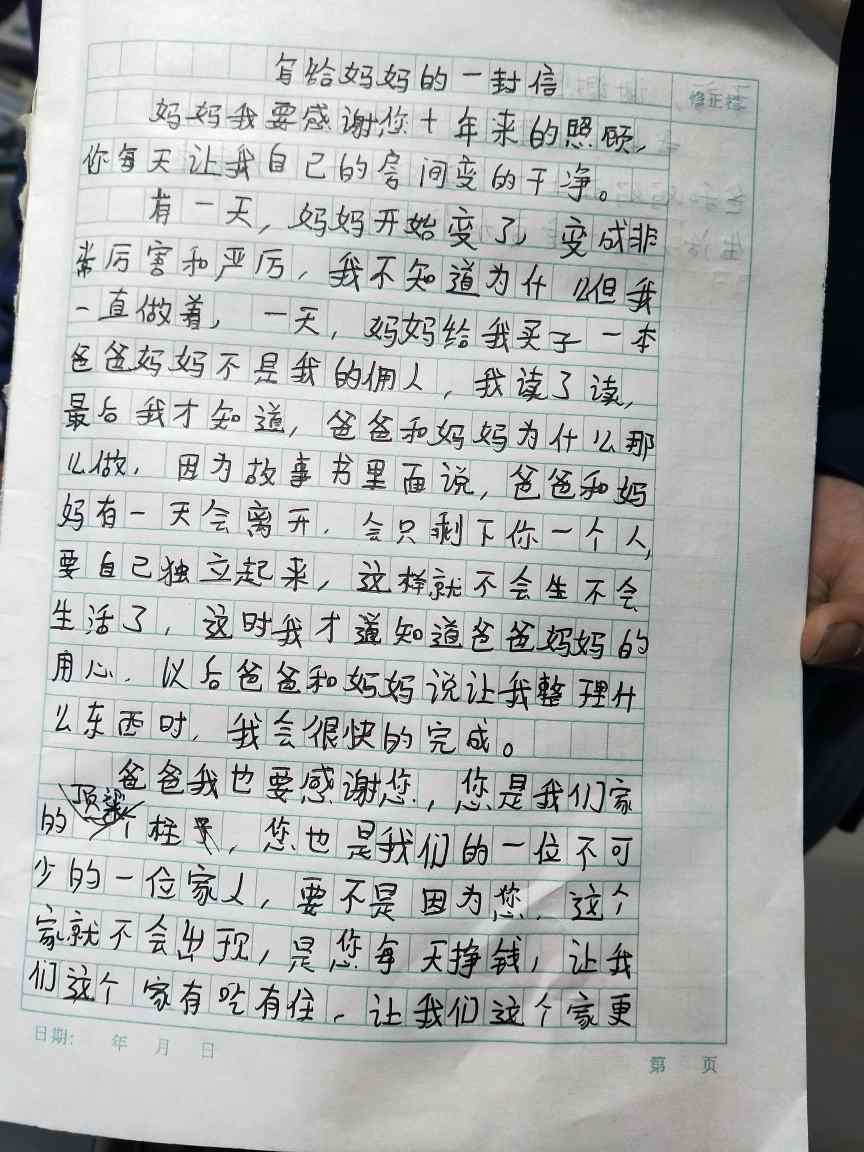 写给妈妈的一封信
修正栏
妈妈我要感谢您十年来的照顾,
你每天让我自己的房间变的干净。
有一天,妈妈开始变了,变成非
常厉害和严厉,我不知道为什么但我
一直做着,一天,妈妈给我买了一本
爸爸妈妈不是我的佣人,我读了读,
最后我才知道,爸爸和妈妈为什么那
么做.因为故事书里面说,爸爸和妈
妈有一天会离开.会只剩下你一个人,
要自己独立起来,这样就不会生不会
生活了,这时我才道知道爸爸妈妈的
用心.以后爸爸和妈妈说让我整理什
么东西时,我会很快的完成。
爸爸我也要感谢您,您是我们家
的顶梁柱,您也是我们的一位不可
少的一位家人,要不是因为您,这个
家就不会出现,是您每天挣钱,让我
们这个家有吃有住,让我们这个家更
日期: 年 月 日
第 页